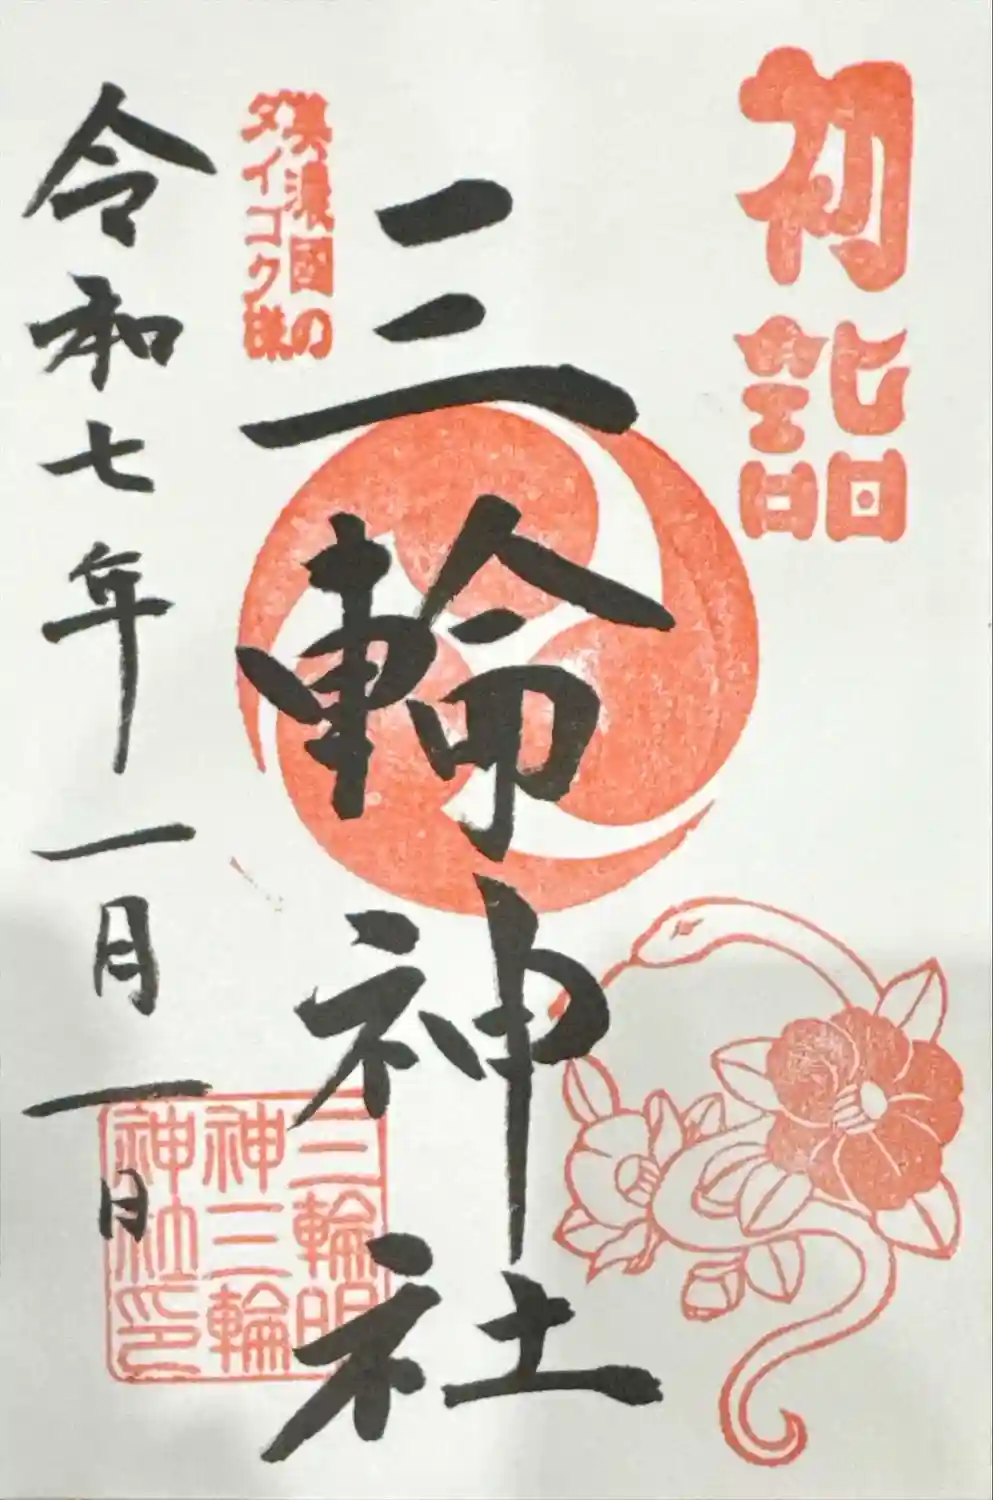 初詣
三輪神社
美濃國の
ダイコク様
三輪明
神三輪
神社印
令和七年一月一日